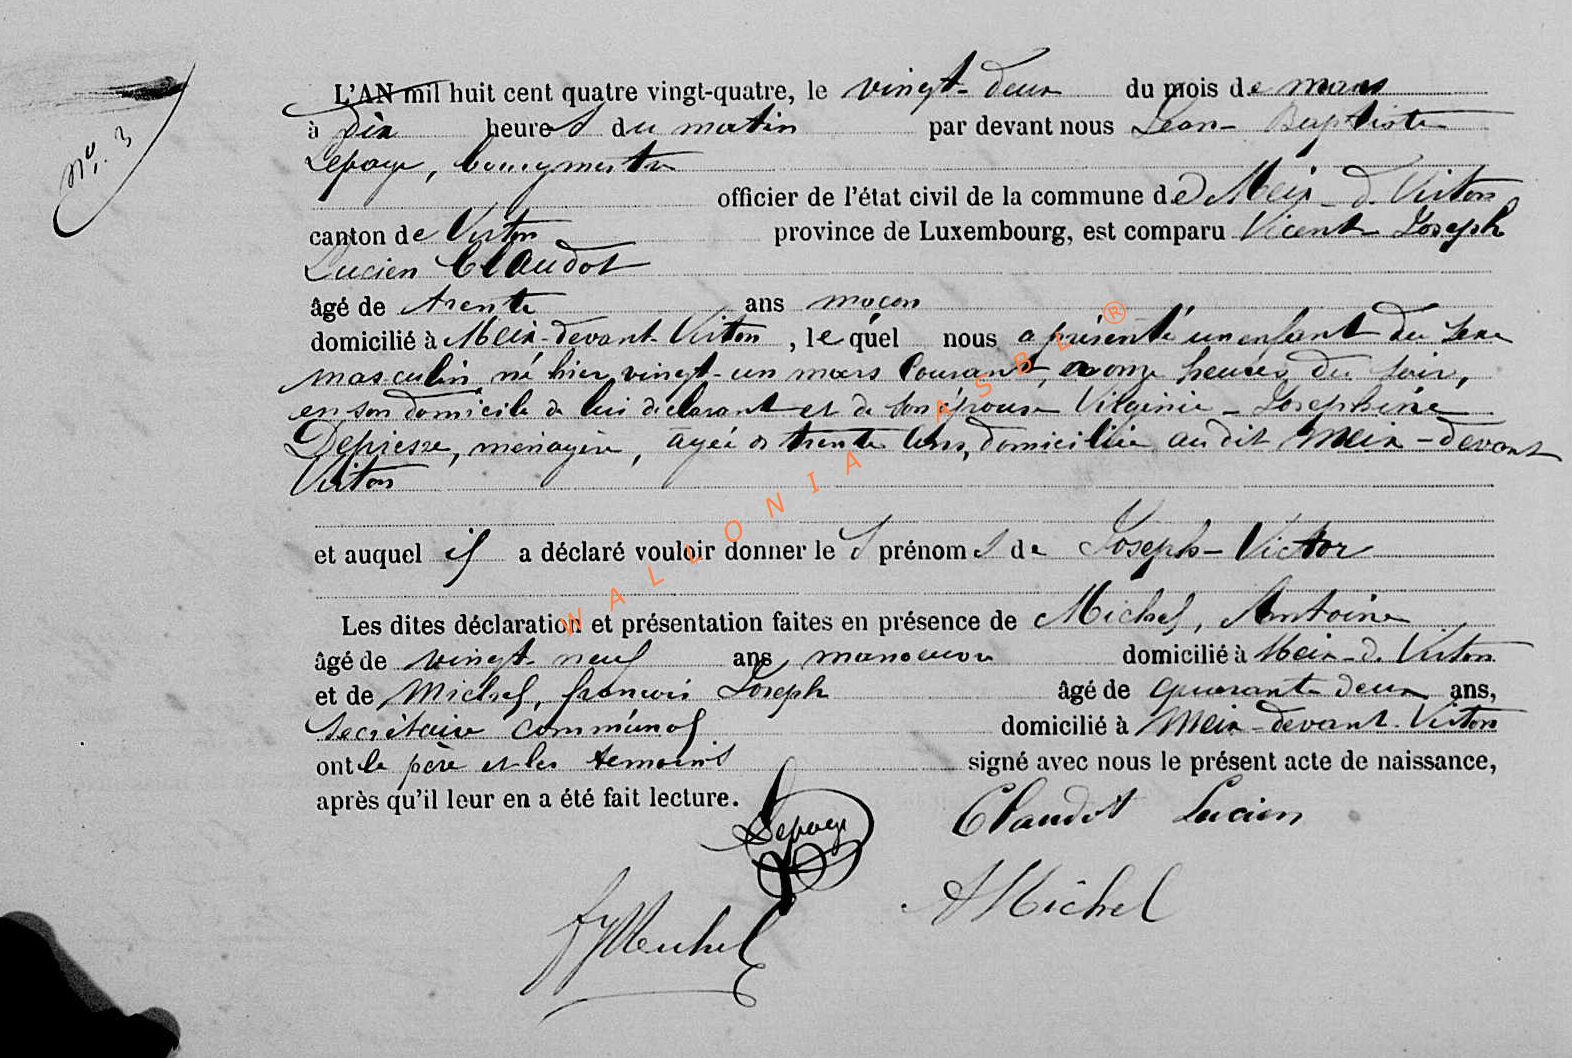 No. 3
L'AN mil huit cent quatre vingt-quatre, le vingt-deux du mois de mars
à dix heures du matin par devant nous Jean-Baptiste
Lepage, bourgmestre
officier de l'état civil de la commune de Meix-d. Virton
canton de Virton province de Luxembourg, est comparu Vicent Joseph
Lucien Claudot
âgé de trente ans maçon
domicilié à Meix-devant-Virton, lequel nous a présenté un enfant du sexe
masculin, né hier vingt-un mars courant, à onze heures du soir,
en son domicile de lui déclarant et de son épouse Virginie-Josephine
Depiesse, ménagère, agée de trente ans, domiciliée au dit Meix-devant
Virton
et auquel il a déclaré vouloir donner les prénoms de Joseph-Victor
Les dites déclaration et présentation faites en présence de Michel, Antoine
âgé de vingt-neuf ans, manœuvre domicilié à Meix-d. Virton
et de Michel, françois Joseph âgé de quarante deux ans,
secrétaire communal domicilié à Meix-devant-Virton
ont le père et les témoins signé avec nous le présent acte de naissance,
après qu'il leur en a été fait lecture.
Lepage Claudot Lucien
A Michel
fj Michel
WALLONIA ASBL ®